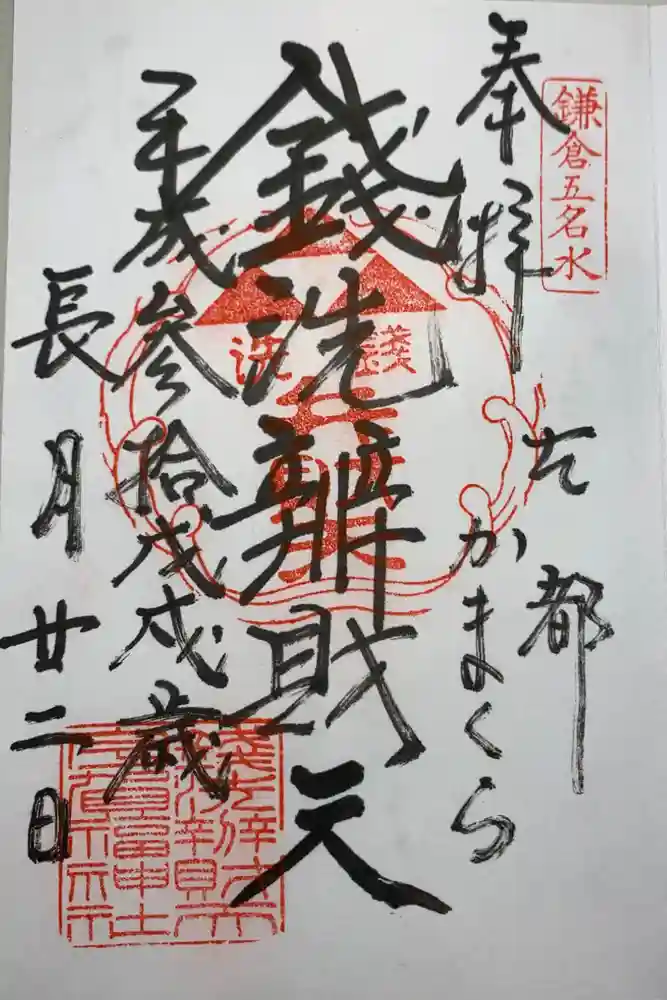 鎌倉五名水
奉拝
古都
かまくら
銭洗辨財天
平成参拾戊戌歳
長月廿二日
銭洗